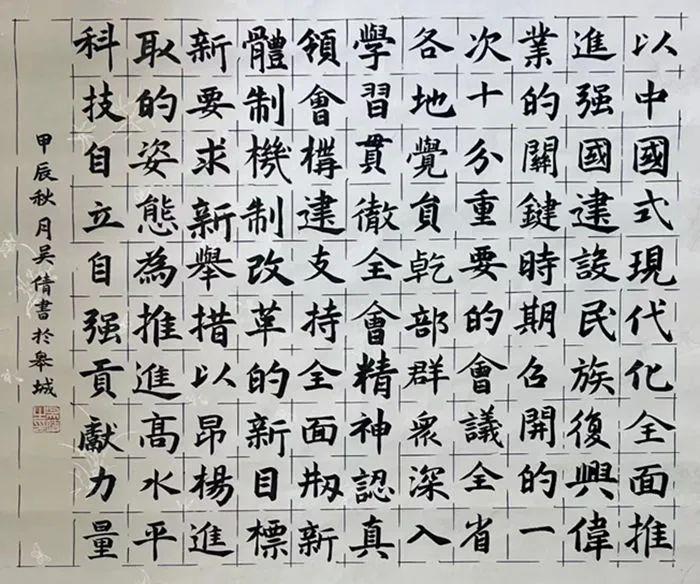 以中國式現代化全面推
進强國建設民族復興偉
業的關鍵時期召開的一
次十分重要的會議全省
各地覺員乾部群衆深入
學習貫徹全會精神認真
領會構建支持全面刱新
體制機制改革的新目標
新要求新舉措以昂楊進
取的姿態為推進高水平
科技自立自强貢獻力量
甲辰秋月吴倩書於皋城